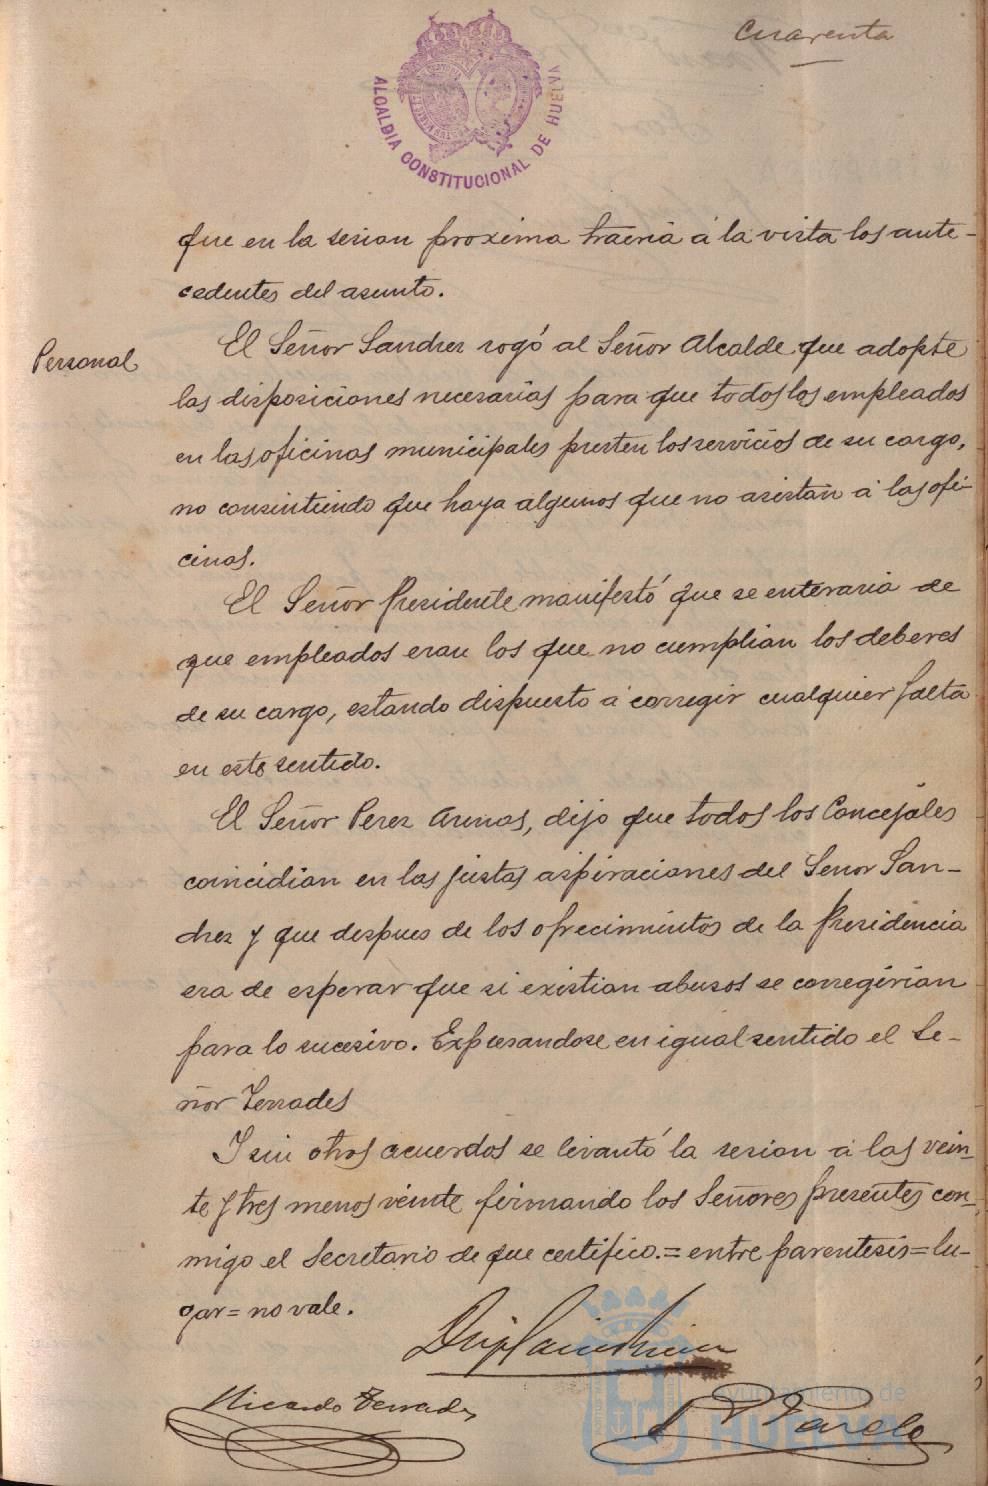 Cuarenta
ALCALDIA CONSTITUCIONAL DE HUELVA
que en la sesion proxima traeria á la vista los ante-
cedentes del asunto.
Personal
El Señor Sanchez rogó al Señor Alcalde que adopte
las disposiciones necesarias para que todos los empleados
en las oficinas municipales presten los servicios de su cargo,
no consintiendo que haya algunos que no asistan á las ofi-
cinas.
El Señor Presidente manifestó que se enteraria de
que empleados eran los que no cumplian los deberes
de su cargo, estando dispuesto á corregir cualquier falta
en este sentido.
El Señor Perez Arenas, dijo que todos los Concejales
coincidian en las justas aspiraciones del Señor San-
chez y que despues de los ofrecimientos de la Presidencia
era de esperar que si existian abusos se corregirian
para lo sucesivo. Expresandose en igual sentido el Se-
ñor Terrades
Y sin otros acuerdos se levantó la sesion á las vein-
te y tres menos veinte firmando los Señores presentes con-
migo el Secretario de que certifico.=entre parentesis=lu-
gar=no vale.
Ricardo Terrades
Ayuntamiento de
HUELVA